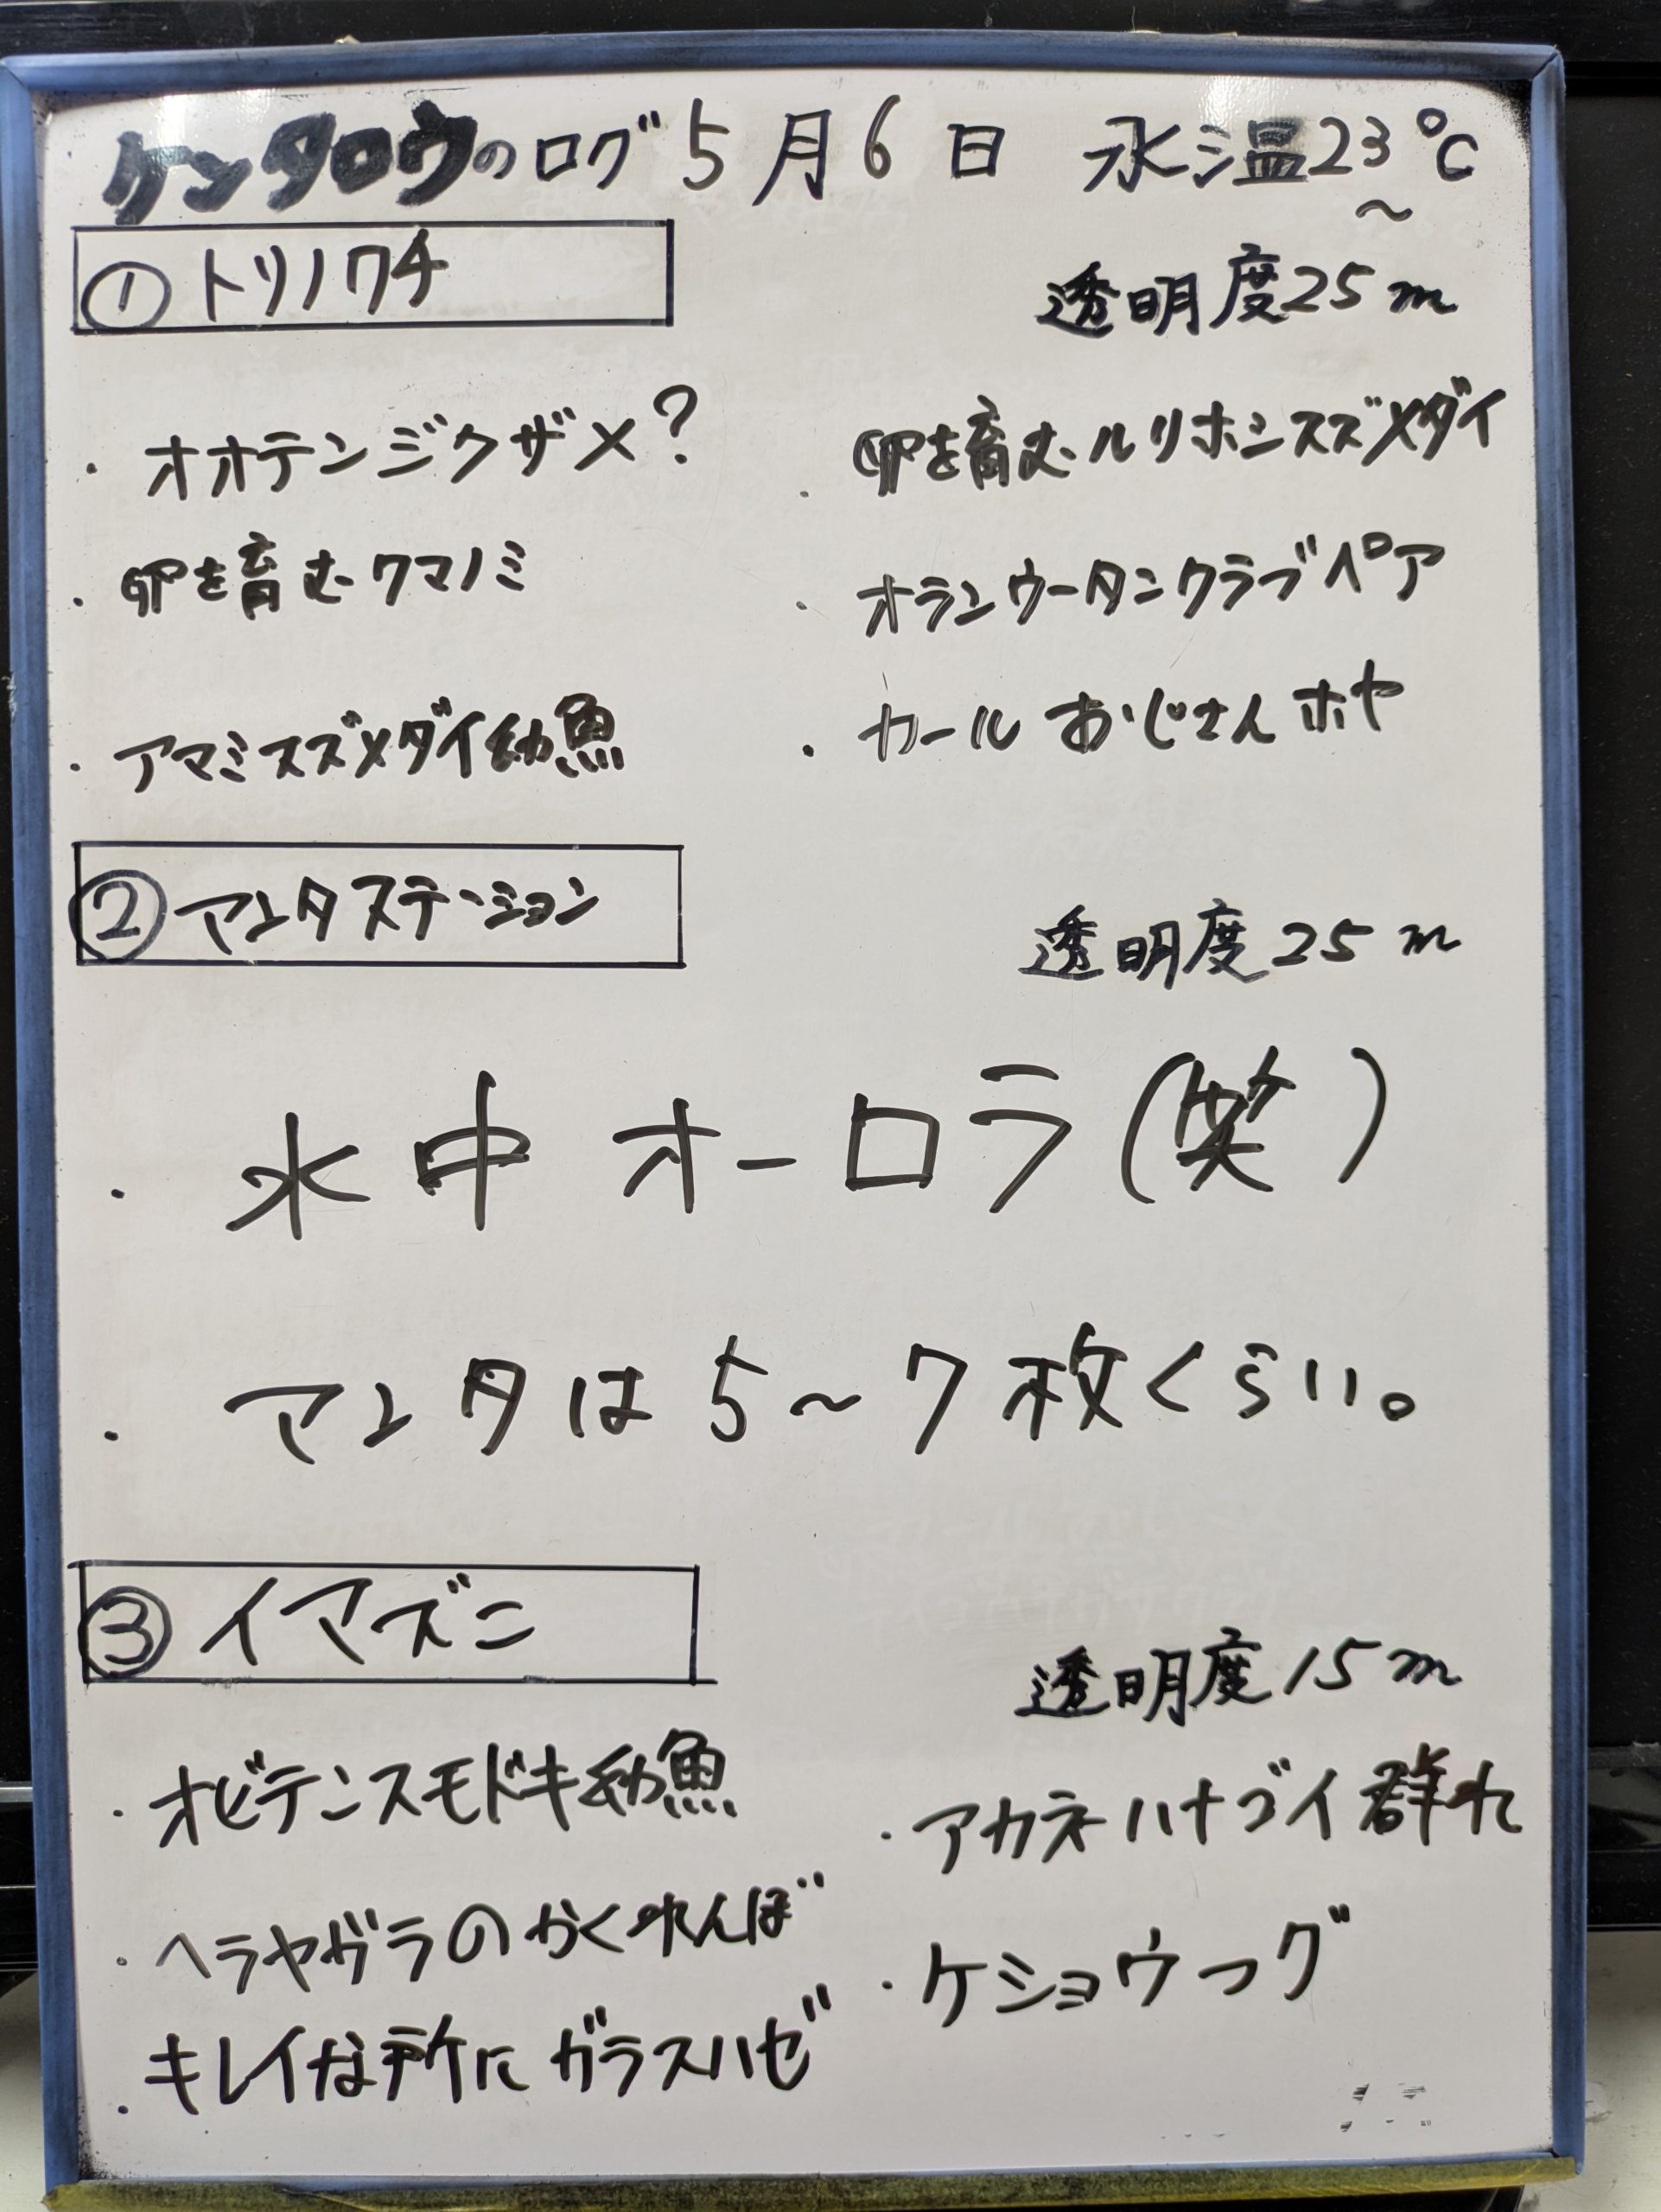 ケンタロウのログ 5月6日 水温23℃~
① トリノクチ
透明度25m
・オオテンジクザメ?
・卵を育むルリホシスズメダイ
・卵を育むクマノミ
・オランウータンクラブペア
・アマミスズメダイ幼魚
・カールおじさんホヤ
② マンタステーション
透明度25m
・水中オーロラ(笑)
・マンタは5~7枚くらい。
③ イマズニ
透明度15m
・オビテンスモドキ幼魚
・アカネハナゴイ群れ
・ヘラヤガラのかくれんぼ
・ケショウフグ
・キレイな所にガラスハゼ